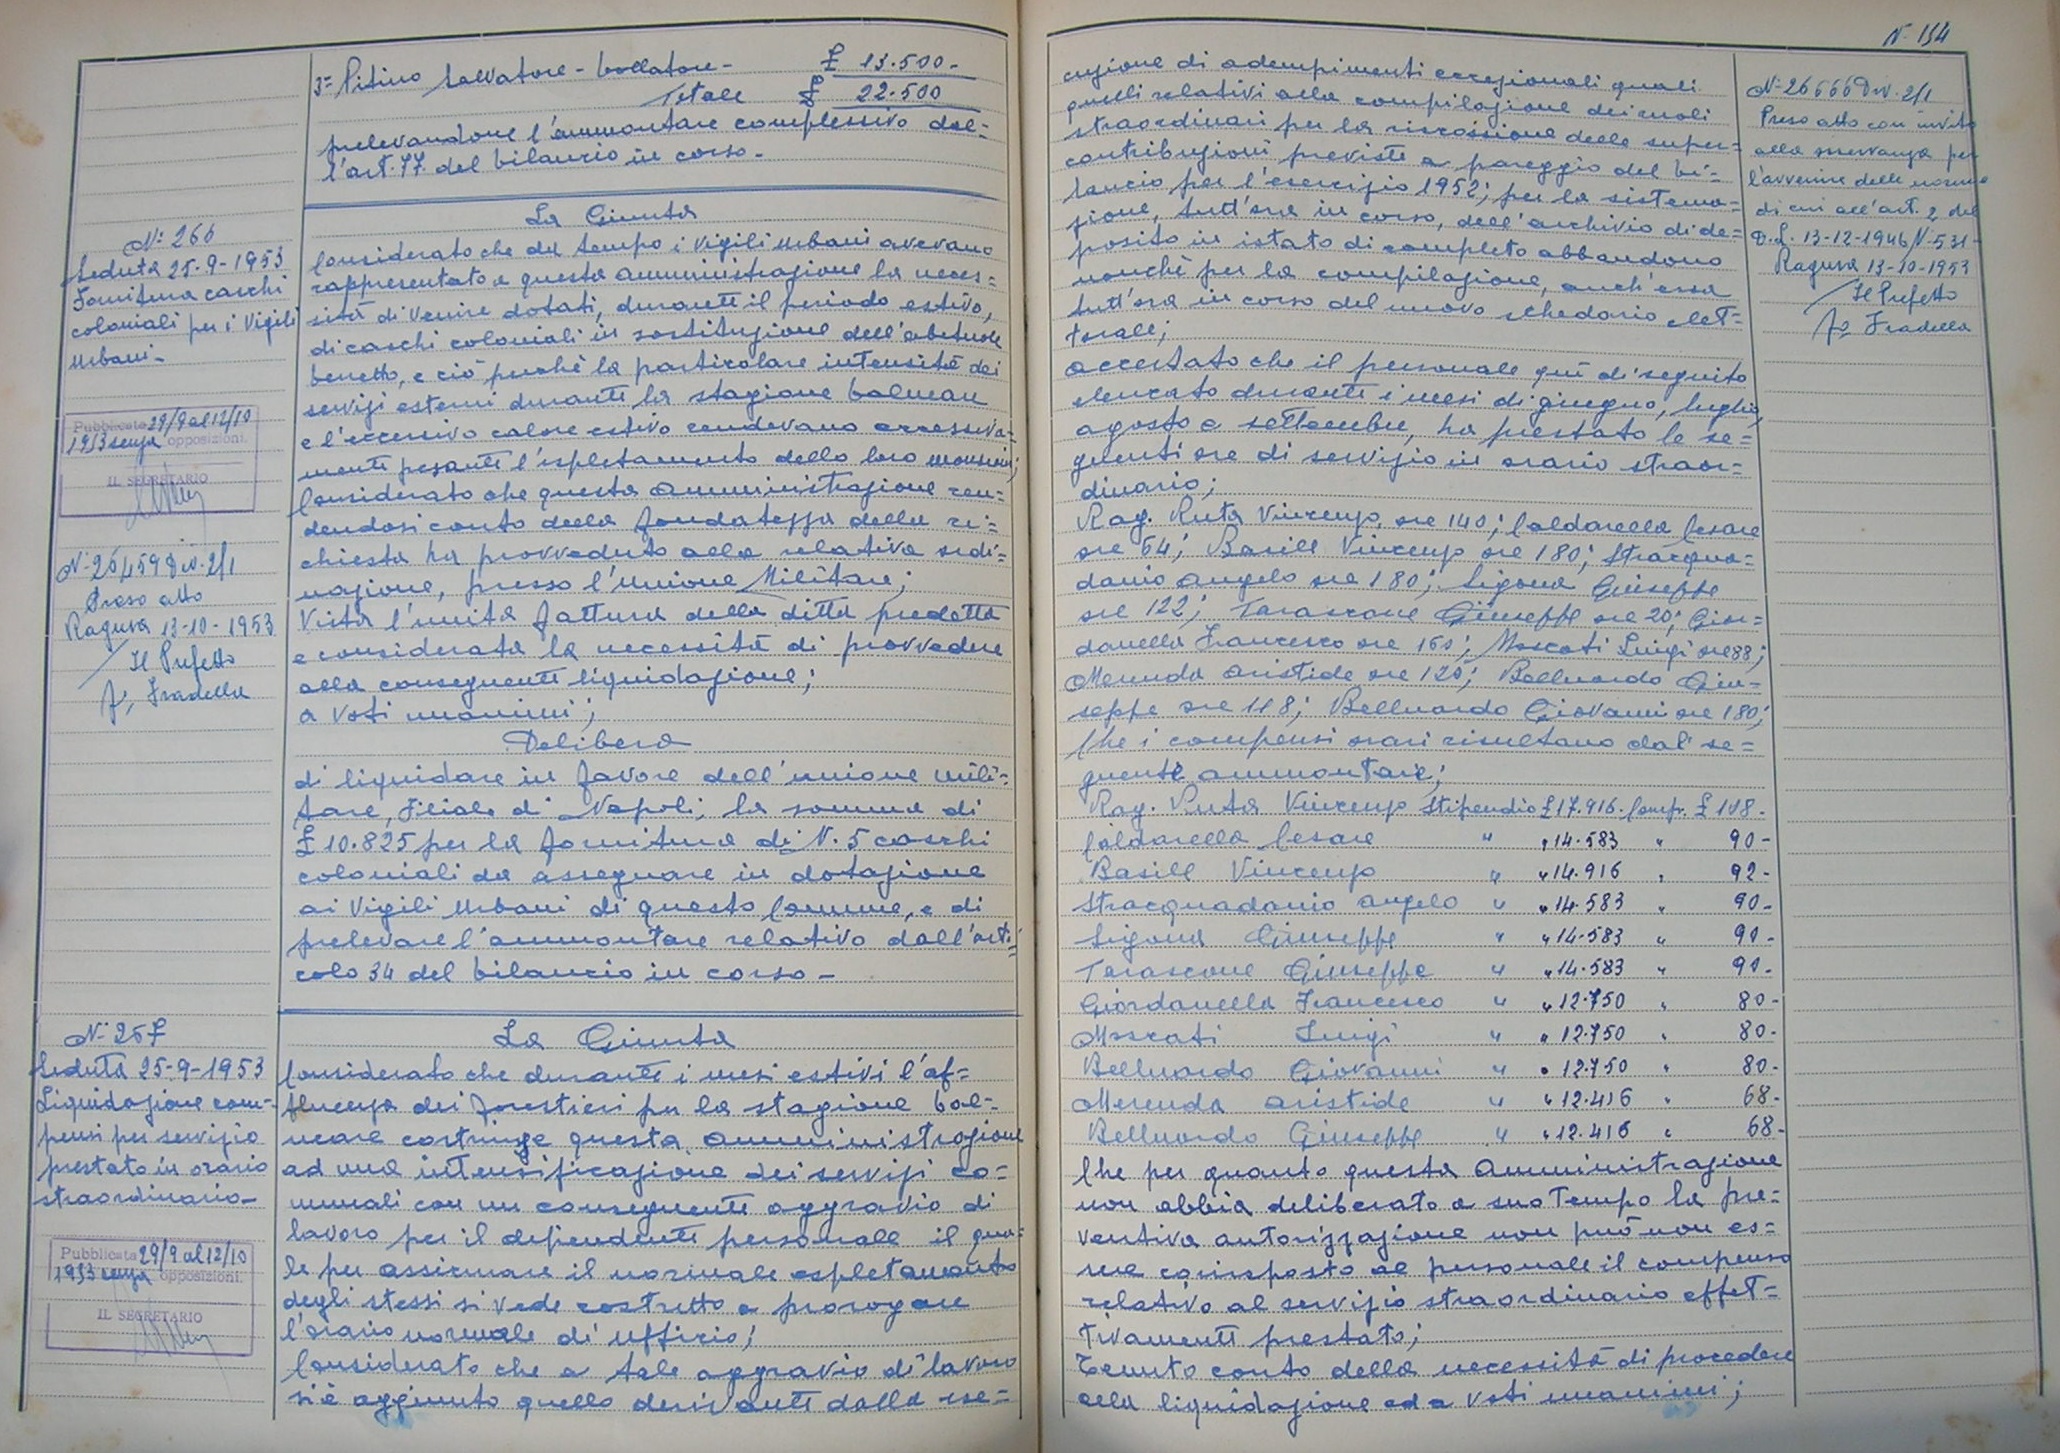 3= Pitino Salvatore - bollatore - £ 13.500-
Totale £ 22.500
prelevandone l'ammontare complessivo dal=
l'art. 77 del bilancio in corso-
N: 266
Seduta 25-9-1953
Fornitura caschi
coloniali per i Vigili
Urbani-
Pubblicata 29/9 al 12/10
1953 senza opposizioni.
IL SEGRETARIO
N. 26459 Div. 2/1
Preso atto
Ragusa 13-10-1953
Il Prefetto
Fradella
La Giunta
Considerato che da tempo i Vigili Urbani avevano
rappresentato a questa amministrazione la neces=
sità di venire dotati, durante il periodo estivo,
di caschi coloniali in sostituzione dell'abituale
berretto, e ciò perchè la particolare intensità dei
servizi esterni durante la stagione balneare
e l'eccessivo calore estivo rendevano eccessiva=
mente pesante l'espletamento delle loro mansioni;
Considerato che questa amministrazione ren=
dendosi conto della fondatezza della ri=
chiesta ha provveduto alla relativa ordi=
nazione, presso l'Unione Militare;
Vista l'unita fattura della ditta predetta
e considerata la necessità di provvedere
alla conseguente liquidazione;
a voti unanimi;
Delibera
di liquidare in favore dell'unione mili=
tare, Filiale di Napoli, la somma di
£ 10.825 per la fornitura di N. 5 caschi
coloniali da assegnare in dotazione
ai Vigili Urbani di questo Comune, e di
prelevare l'ammontare relativo dall'arti=
colo 34 del bilancio in corso-
N: 257
Seduta 25-9-1953
Liquidazione com-
pensi per servizio
prestato in orario
straordinario-
Pubblicata 29/9 al 12/10
1953 senza opposizioni.
IL SEGRETARIO
La Giunta
Considerato che durante i mesi estivi l'af=
fluenza dei forestieri per la stagione bal=
neare costringe questa amministrazione
ad una intensificazione dei servizi co=
munali con un conseguente aggravio di
lavoro per il dipendente personale il qua=
le per assicurare il normale espletamento
degli stessi si vede costretto a prorogare
l'orario normale di ufficio;
Considerato che a tale aggravio di lavoro
si è aggiunto quello derivante dalla ese=
N. 134
cuzione di adempimenti eccezionali quali
quelli relativi alla compilazione dei ruoli
straordinari per la riscossione delle super=
contribuzioni previste a pareggio del bi=
lancio per l'esercizio 1952; per la sistema=
zione, tutt'ora in corso, dell'archivio di de=
posito in istato di completo abbandono
nonchè per la compilazione, anch'essa
tutt'ora in corso del nuovo schedario elet=
torale;
accertato che il personale qui di seguito
elencato durante i mesi di giugno, luglio,
agosto e settembre, ha prestato le se=
guenti ore di servizio in orario straor=
dinario;
Rag. Ruta Vincenzo, ore 140; Caldarella Cesare
ore 64; Basile Vincenzo ore 180; Stracqua=
danio Angelo ore 180; Sigona Giuseppe
ore 122; Tarascone Giuseppe ore 20; Gior=
danella Francesco ore 160; Moscati Luigi ore 88;
Merenda Aristide ore 120; Belluardo Giu=
seppe ore 118; Belluardo Giovanni ore 180;
Che i compensi orari risultano dal se=
guente ammontare;
Rag. Ruta Vincenzo Stipendio £ 17.916. Comp. £ 108-
Caldarella Cesare " " 14.583 " 90-
Basile Vincenzo " " 14.916 " 92-
Stracquadanio Angelo " " 14.583 " 90-
Sigona Giuseppe " " 14.583 " 90-
Tarascone Giuseppe " " 14.583 " 90-
Giordanella Francesco " " 12.750 " 80-
Moscati Luigi " " 12.750 " 80-
Belluardo Giovanni " " 12.750 " 80-
Merenda Aristide " " 12.416 " 68-
Belluardo Giuseppe " " 12.416 " 68-
Che per quanto questa Amministrazione
non abbia deliberato a suo tempo la pre=
ventiva autorizzazione non può non es=
sere corrisposto al personale il compenso
relativo al servizio straordinario effet=
tivamente prestato;
Tenuto conto della necessità di procedere
alla liquidazione ed a voti unanimi;
N. 26666 Div. 2/1
Preso atto con invito
alla osservanza per
l'avvenire delle norme
di cui all'art. 2 del
D.L. 13-12-1946 N. 531-
Ragusa 13-10-1953
Il Prefetto
Fradella